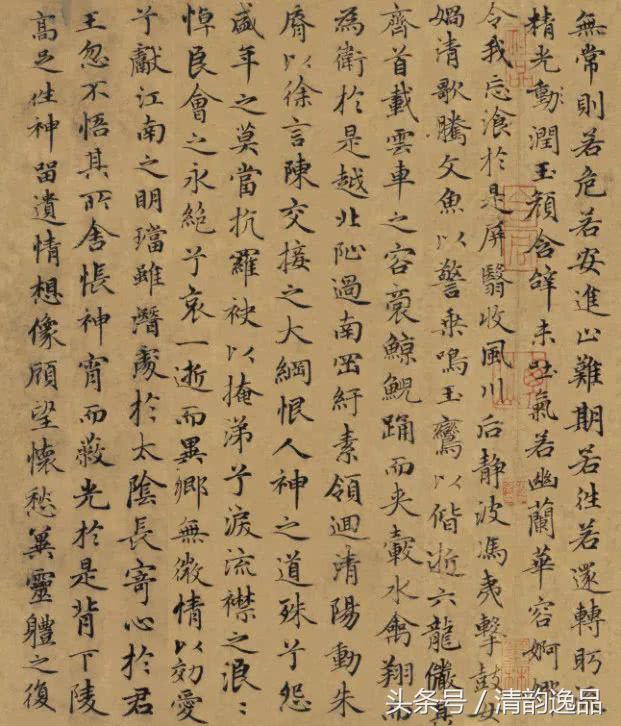 無常則若危若安進止難期若往若還轉眄
精光動潤玉顏含辭未吐氣若幽蘭華容婀娜
令我忘飡於是屏翳收風川后靜波馮夷擊鼓女
媧清歌騰文魚以警乘鳴玉鸞以偕逝六龍儼其
齊首載雲車之容裔鯨鯢踊而夾轂水禽翔而
為衛於是越北沚過南岡紆素領迴清陽動朱
脣以徐言陳交接之大綱恨人神之道殊兮怨
盛年之莫當抗羅袂以掩涕兮淚流襟之浪〻
悼良會之永絶兮哀一逝而異鄉無微情以効愛
兮獻江南之明璫雖潛處於太陰長寄心於君
王忽不悟其所舍悵神宵而蔽光於是背下陵
高足往神留遺情想像顧望懷愁冀靈軆之復
头条号 / 清韵逸品